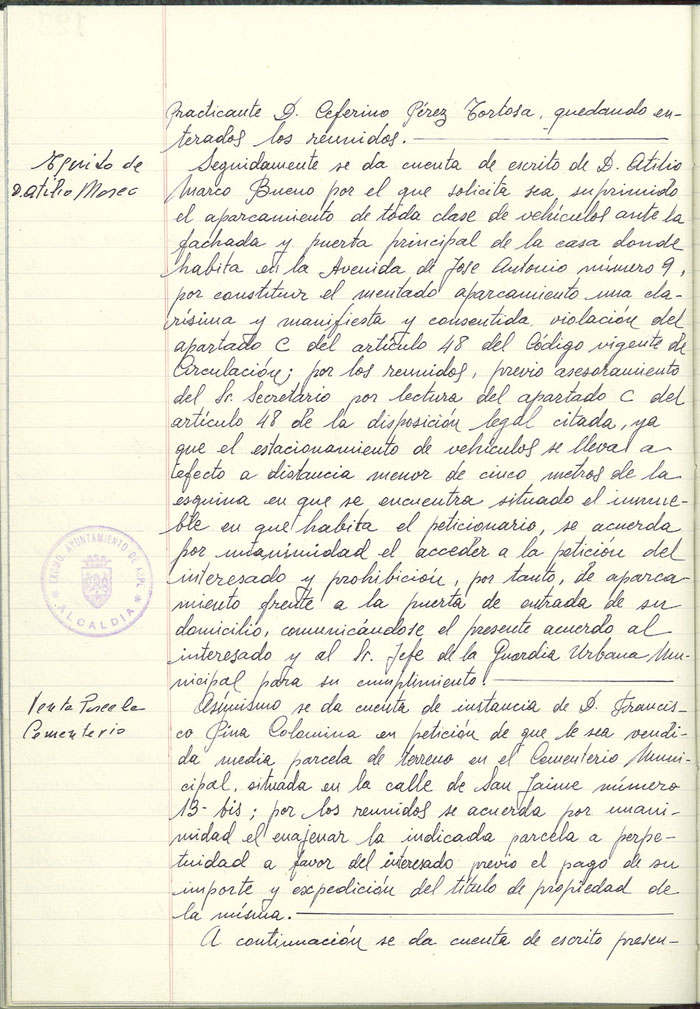 practicante D. Ceferino Pérez Tortosa, quedando en-
terados los reunidos.
Escrito de
D. Atilio Marco
Seguidamente se da cuenta de escrito de D. Atilio
Marco Bueno por el que solicita sea suprimido
el aparcamiento de toda clase de vehículos ante la
fachada y puerta principal de la casa donde
habita en la Avenida de Jose Antonio número 9,
por constituir el mentado aparcamiento una cla-
rísima y manifiesta y consentida violación del
apartado C del artículo 48 del Código vigente de
Circulación; por los reunidos, previo asesoramiento
del Sr. Secretario por lectura del apartado C del
artículo 48 de la disposición legal citada, ya
que el estacionamiento de vehículos se lleva a
efecto a distancia menor de cinco metros de la
esquina en que se encuentra situado el inmue-
ble en que habita el peticionario, se acuerda
por unanimidad el acceder a la petición del
interesado y prohibición, por tanto, de aparca-
miento frente a la puerta de entrada de su
domicilio, comunicándose el presente acuerdo al
interesado y al Sr. Jefe de la Guardia Urbana Mu-
nicipal para su cumplimiento.
EXCMO. AYUNTAMIENTO DE ASPE
* ALCALDIA *
Venta Parcela
Cementerio
Asimismo se da cuenta de instancia de D. Francis-
co Pina Colomina en petición de que le sea vendi-
da media parcela de terreno en el Cementerio Muni-
cipal, situada en la calle de San Jaime número
13-bis; por los reunidos se acuerda por unani-
midad el enajenar la indicada parcela a perpe-
tuidad a favor del interesado previo el pago de su
importe y expedición del título de propiedad de
la misma.
A continuación se da cuenta de escrito presen-